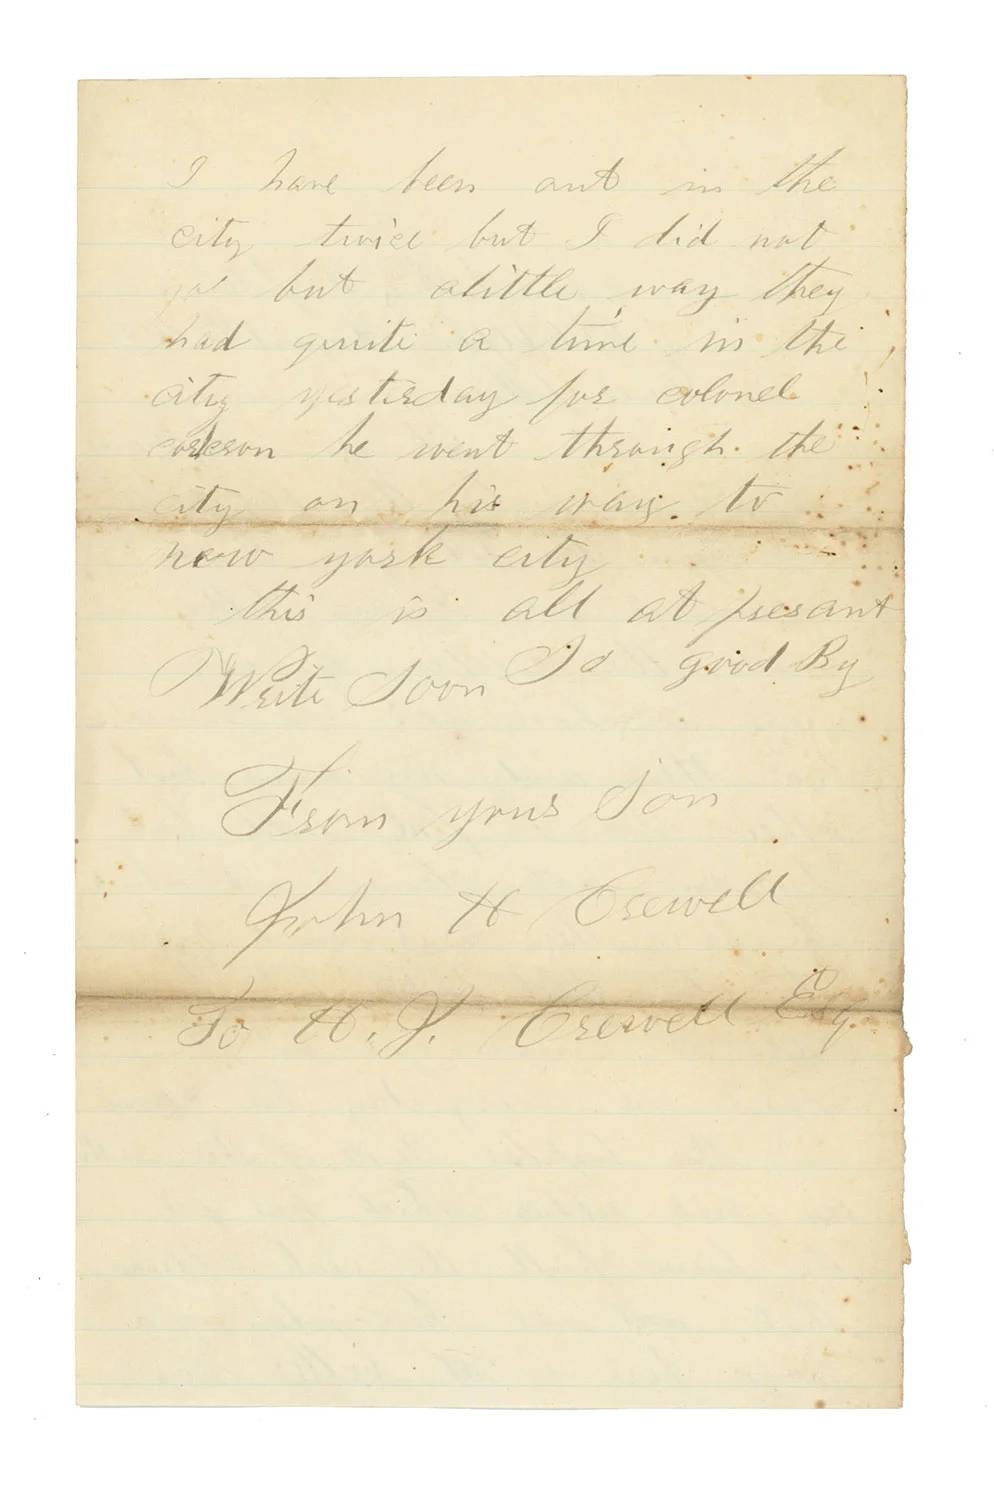 I have been out in the
city twice but I did not
go but alittle way they
had quite a time in the
city yesterday for colonel
corkeron he went through the
city on his way to
new york city
this is all at presant
So good By
Write Soon
From yous Son
John H Crewell
To H. J. Crewell Esq